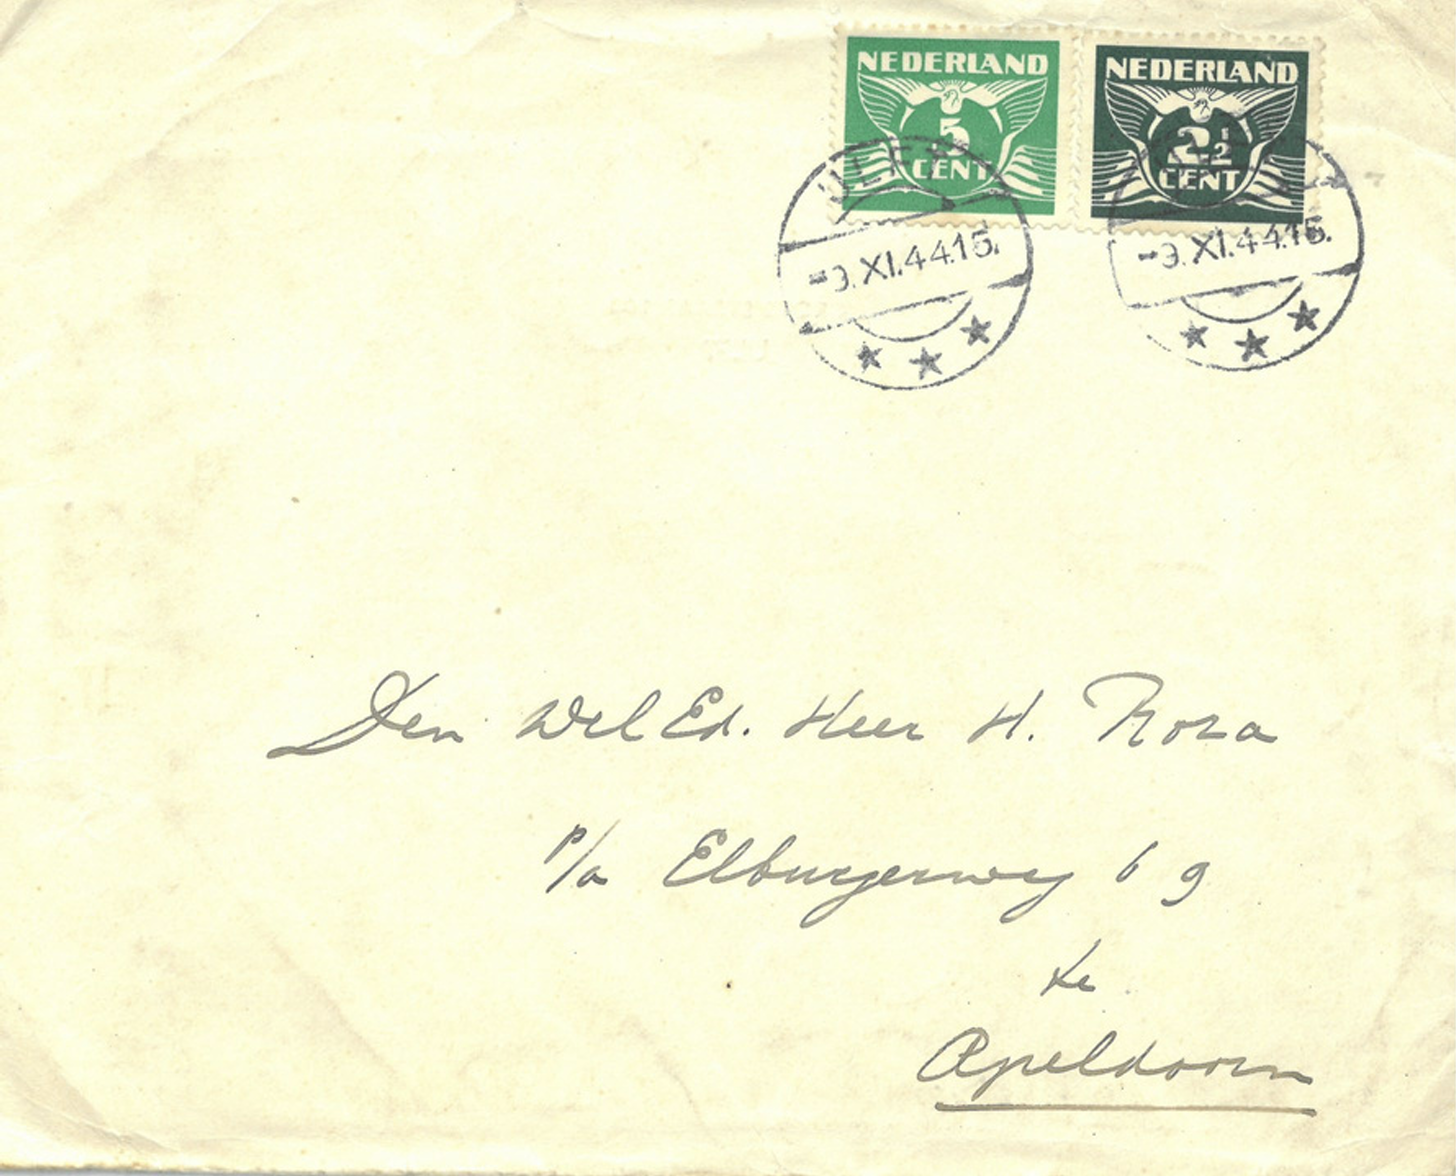 NEDERLAND
5
CENT
NEDERLAND
2½
CENT
ULFT
-9.XI.44.15.
-9.XI.44.15.
Den WelEd. Heer H. Rosa
p/a Elburgerweg 69
te
Apeldoorn